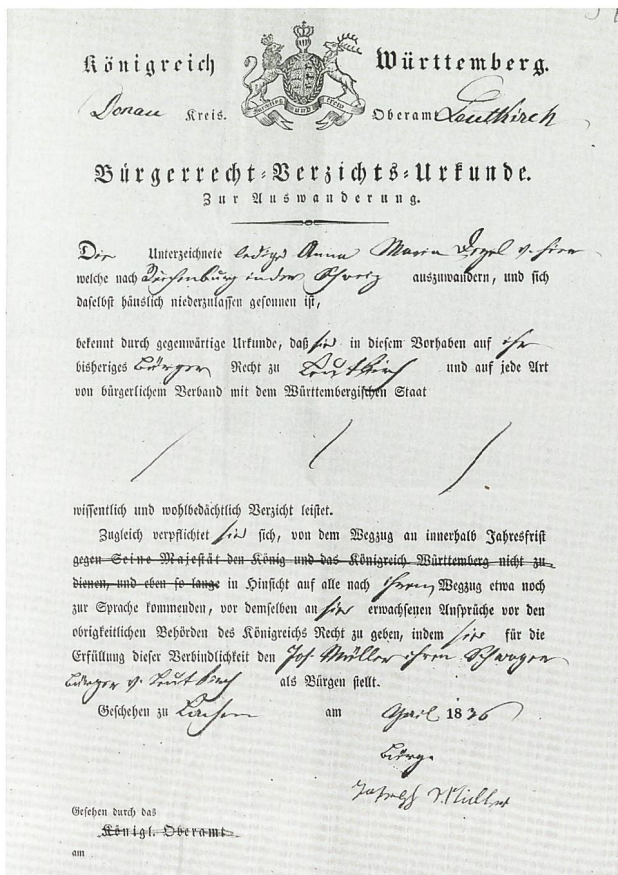 Königreich Württemberg.
Donau Kreis. Oberamt Leutkirch
furchtlos und trew
Bürgerrecht-Verzichts-Urkunde.
Zur Auswanderung.
Die Unterzeichnete ledige Anna Maria v. hier
welche nach Reichenburg in der Schweiz auszuwandern, und sich
daselbst häuslich niederzulassen gesonnen ist,
bekennt durch gegenwärtige Urkunde, daß sie in diesem Vorhaben auf ihr
bisheriges Bürger Recht zu Leutkirch und auf jede Art
von bürgerlichem Verband mit dem Württembergischen Staat
wissentlich und wohlbedächtlich Verzicht leistet.
Zugleich verpflichtet sie sich, von dem Wegzug an innerhalb Jahresfrist
gegen Seine Majestät den König und das Königreich Württemberg nicht zu
dienen, und eben so lange in Hinsicht auf alle nach ihrem Wegzug etwa noch
zur Sprache kommenden, vor demselben an sie erwachsenen Ansprüche vor den
obrigkeitlichen Behörden des Königreichs Recht zu geben, indem sie für die
Erfüllung dieser Verbindlichkeit den Jos. Müller ihren Schwager
Bürger v. Leutkirch als Bürgen stellt.
Geschehen zu Lachen am April 1836
Bürge
Joseph Müller
Gesehen durch das
Königl. Oberamt
am